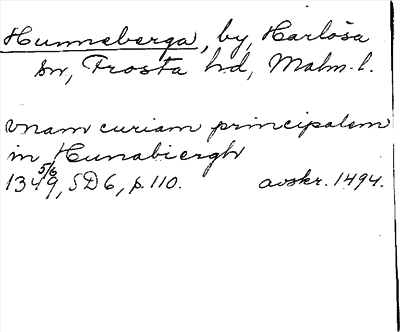 Hunneberga, by, Harlösa
sn, Frosta hd, Malm. l.
vnam curiam principalem
in Hunabiergh
5/6
1349, SD6, p. 110. avskr. 1494.